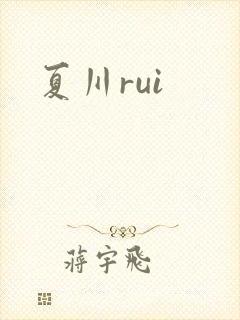 夏川rui
蒋宇飛